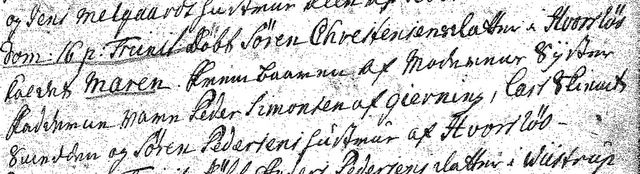 og Jens Melgaards Hustrue
Dom: 16 p. Trinit Døbt Søren Christensens datter i Hvorsløb
kaldet Maren. Frembaaren af Moderens Syster
Fadderne vare Peder Simonsen af gierning, Lars
Svendsen og Søren Pedersens Hustrue af Hvorsløb
Pedersens datter i Wistrup